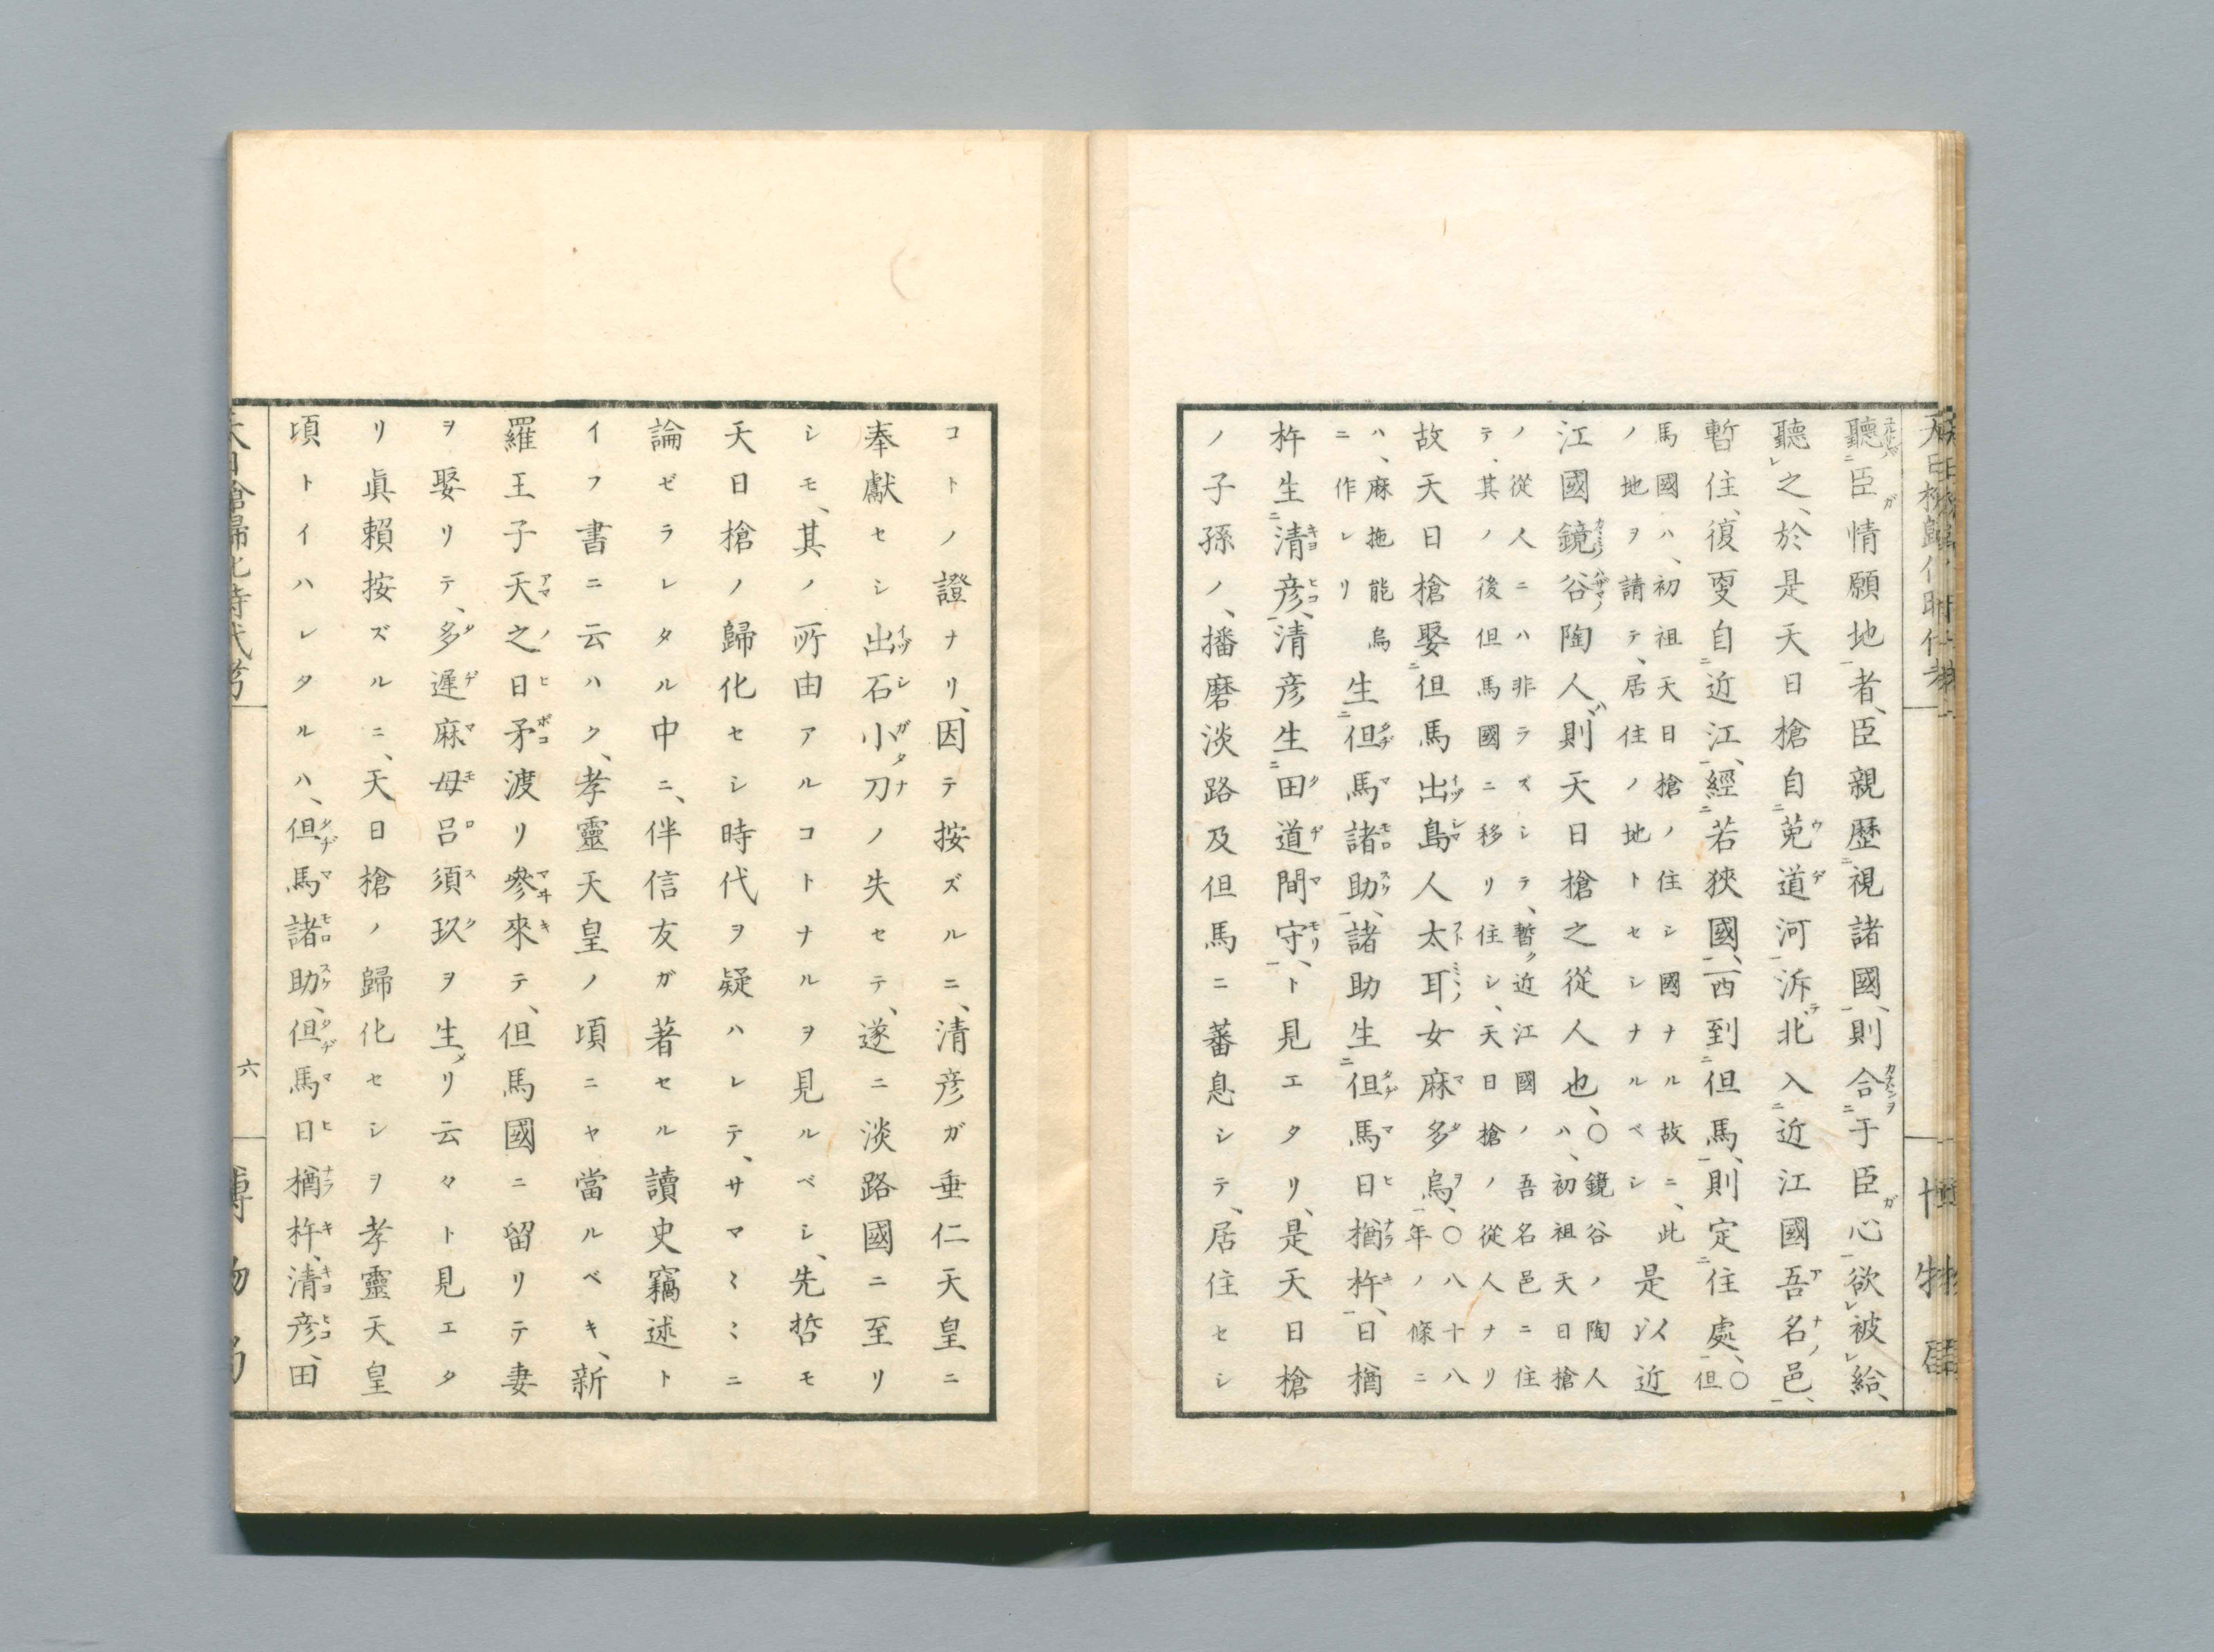 聽臣情願地者、臣親歷視諸國、則合于臣心欲被給、
聽之、於是天日槍自菟道河泝北入近江國吾名邑、
暫住、復更自近江、經若狹國、西到但馬、則定住處、〇但
馬國ハ、初祖天日槍ノ住シ國ナル故ニ、此
ノ地ヲ請テ、居住ノ地トセシナルベシ
是以近
江國鏡谷陶人、則天日槍之從人也、〇鏡谷ノ陶人ハ、初祖天日槍
ノ從人ニハ非ラズシテ、暫ク近江國ノ吾名邑ニ住
テ、其ノ後但馬國ニ移リ住シ、天日槍ノ從人ナリ
故天日槍娶但馬出島人太耳女麻多烏、〇八十八年ノ條ニ
ハ、麻拖能烏
ニ作レリ
生但馬諸助、諸助生但馬日楢杵、日楢
杵生清彦、清彦生田道間守、ト見エタリ、是天日槍
ノ子孫ノ、播磨淡路及但馬ニ蕃息シテ、居住セシ
コトノ證ナリ、因テ按ズルニ、清彦ガ垂仁天皇ニ
奉獻セシ出石小刀ノ失セテ、遂ニ淡路國ニ至リ
シモ、其ノ所由アルコトナルヲ見ルベシ、先哲モ
天日槍ノ歸化セシ時代ヲ疑ハレテ、サマ〻〻ニ
論ゼラレタル中ニ、伴信友ガ著セル讀史竊述ト
イフ書ニ云ハク、孝靈天皇ノ頃ニヤ當ルベキ、新
羅王子天之日矛渡リ參來テ、但馬國ニ留リテ妻
ヲ娶リテ、多遲麻母呂須玖ヲ生メリ云々ト見エタ
リ眞賴按ズルニ、天日槍ノ歸化セシヲ孝靈天皇
頃トイハレタルハ、但馬諸助、但馬日楢杵、清彦、田
天日槍歸化時代考
六
博物局